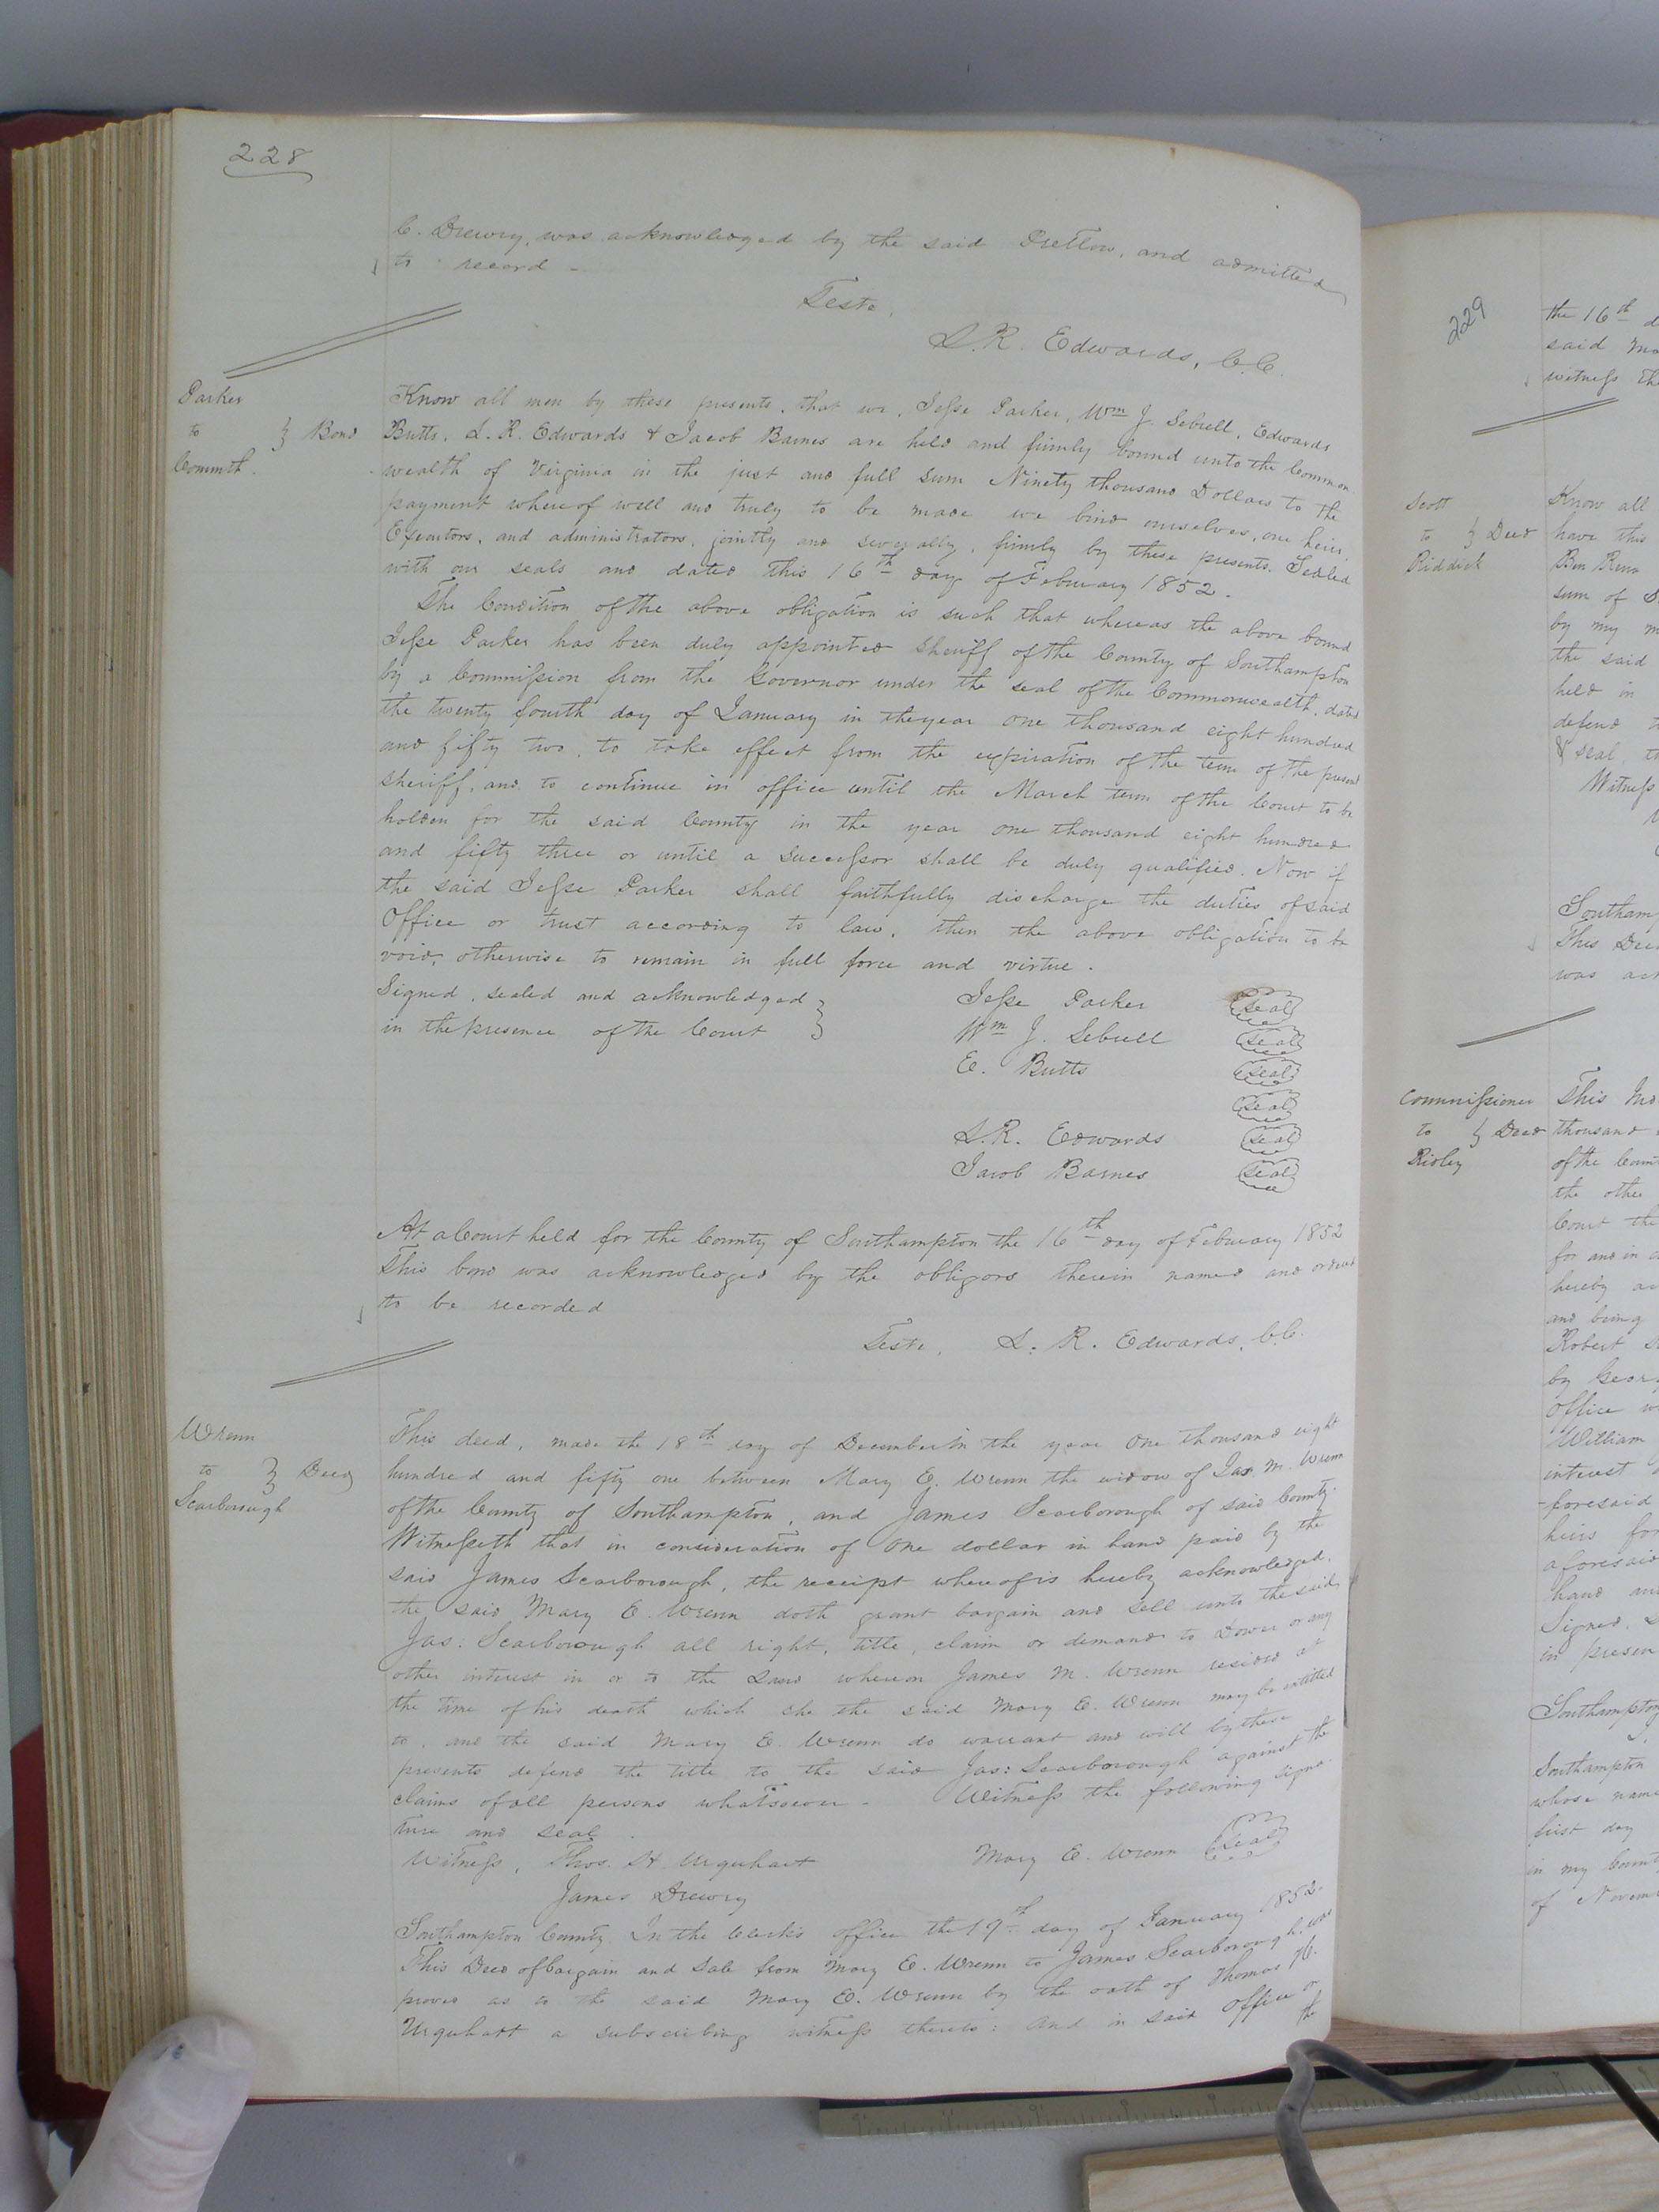 228
C. Drewry, was acknowledged by the said Pretlow, and admitted
to record -
Teste,
L. R. Edwards, C.C.
Parker
to } Bond
Commth.
Know all men by these presents, that we, Jesse Parker, Wm J. Sebrell, Edwards
Butts, L. R. Edwards & Jacob Barnes are held and firmly bound unto the Common
wealth of Virginia in the just and full sum Ninety thousand Dollars to the
payment whereof well and truly to be made we bind ourselves, our heirs,
Executors, and administrators, jointly and severally, firmly by these presents. Sealed
with our seals and dated this 16th day of February 1852.
The Condition of the above obligation is such that whereas the above bound
Jesse Parker has been duly appointed Sheriff of the County of Southampton
by a Commission from the Governor under the seal of the Commonwealth, dated
the twenty fourth day of January in the year one thousand eight hundred
and fifty two, to take effect from the expiration of the term of the present
sheriff, and to continue in office until the March term of the Court to be
holden for the said County in the year one thousand eight hundred
and fifty three or until a successor shall be duly qualified. Now if
the said Jesse Parker shall faithfully discharge the duties of said
Office or trust according to law, then the above obligation to be
void, otherwise to remain in full force and virtue.
Signed, sealed and acknowledged }
in the presence of the Court }
Jesse Parker seal
Wm J. Sebrell seal
E. Butts seal
seal
L. R. Edwards seal
Jacob Barnes seal
At a Court held for the County of Southampton the 16th day of February 1852
This bond was acknowledged by the obligors therein named and ordered
to be recorded
Teste, L. R. Edwards, C.C.
Wrenn
to } Deed
Scarborough
This deed, made the 18th day of December in the year One thousand eight
hundred and fifty one between Mary E. Wrenn the widow of Jas. M. Wrenn
of the County of Southampton, and James Scarborough of said County.
Witnesseth that in consideration of One dollar in hand paid by the
said James Scarborough, the receipt whereof is hereby acknowledged.
the said Mary E. Wrenn doth grant bargain and sell unto the said
Jas. Scarborough all right, title, claim or demand to Dower or any
other interest in or to the Land whereon James M. Wrenn resided at
the time of his death which she the said Mary E. Wrenn may be intitled
to, and the said Mary E. Wrenn do warrant and will by these
presents defend the title to the said Jas: Scarborough against the
claims of all persons whatsoever - Witness the following signa-
ture and seal.
Witness, Thos. H. Urquhart Mary E. Wrenn seal
James Drewry
Southampton County. In the Clerks office the 19th day of January 1852.
This Deed of bargain and Sale from Mary E. Wrenn to James Scarborough, was
proved as to the said Mary E. Wrenn by the oath of Thomas H.
Urquhart a subscribing witness thereto: And in said Office on
the
229
the 16th
said
witness
Scott
to } Deed
Riddick
Know all
have this
Ben
sum of
by my
the said
held in
defend
& seal,
Witness
Southam
This Deed
was
Commissioner
to } Deed
Ridley
This
thousand
of the
the other
Court the
for and in
hereby
and being
Robert
by
Office
William
interest
foresaid
heirs
aforesaid
hand
Signed,
in presen
Southampton
Southampton
whose name
first day
in my County
of Novem